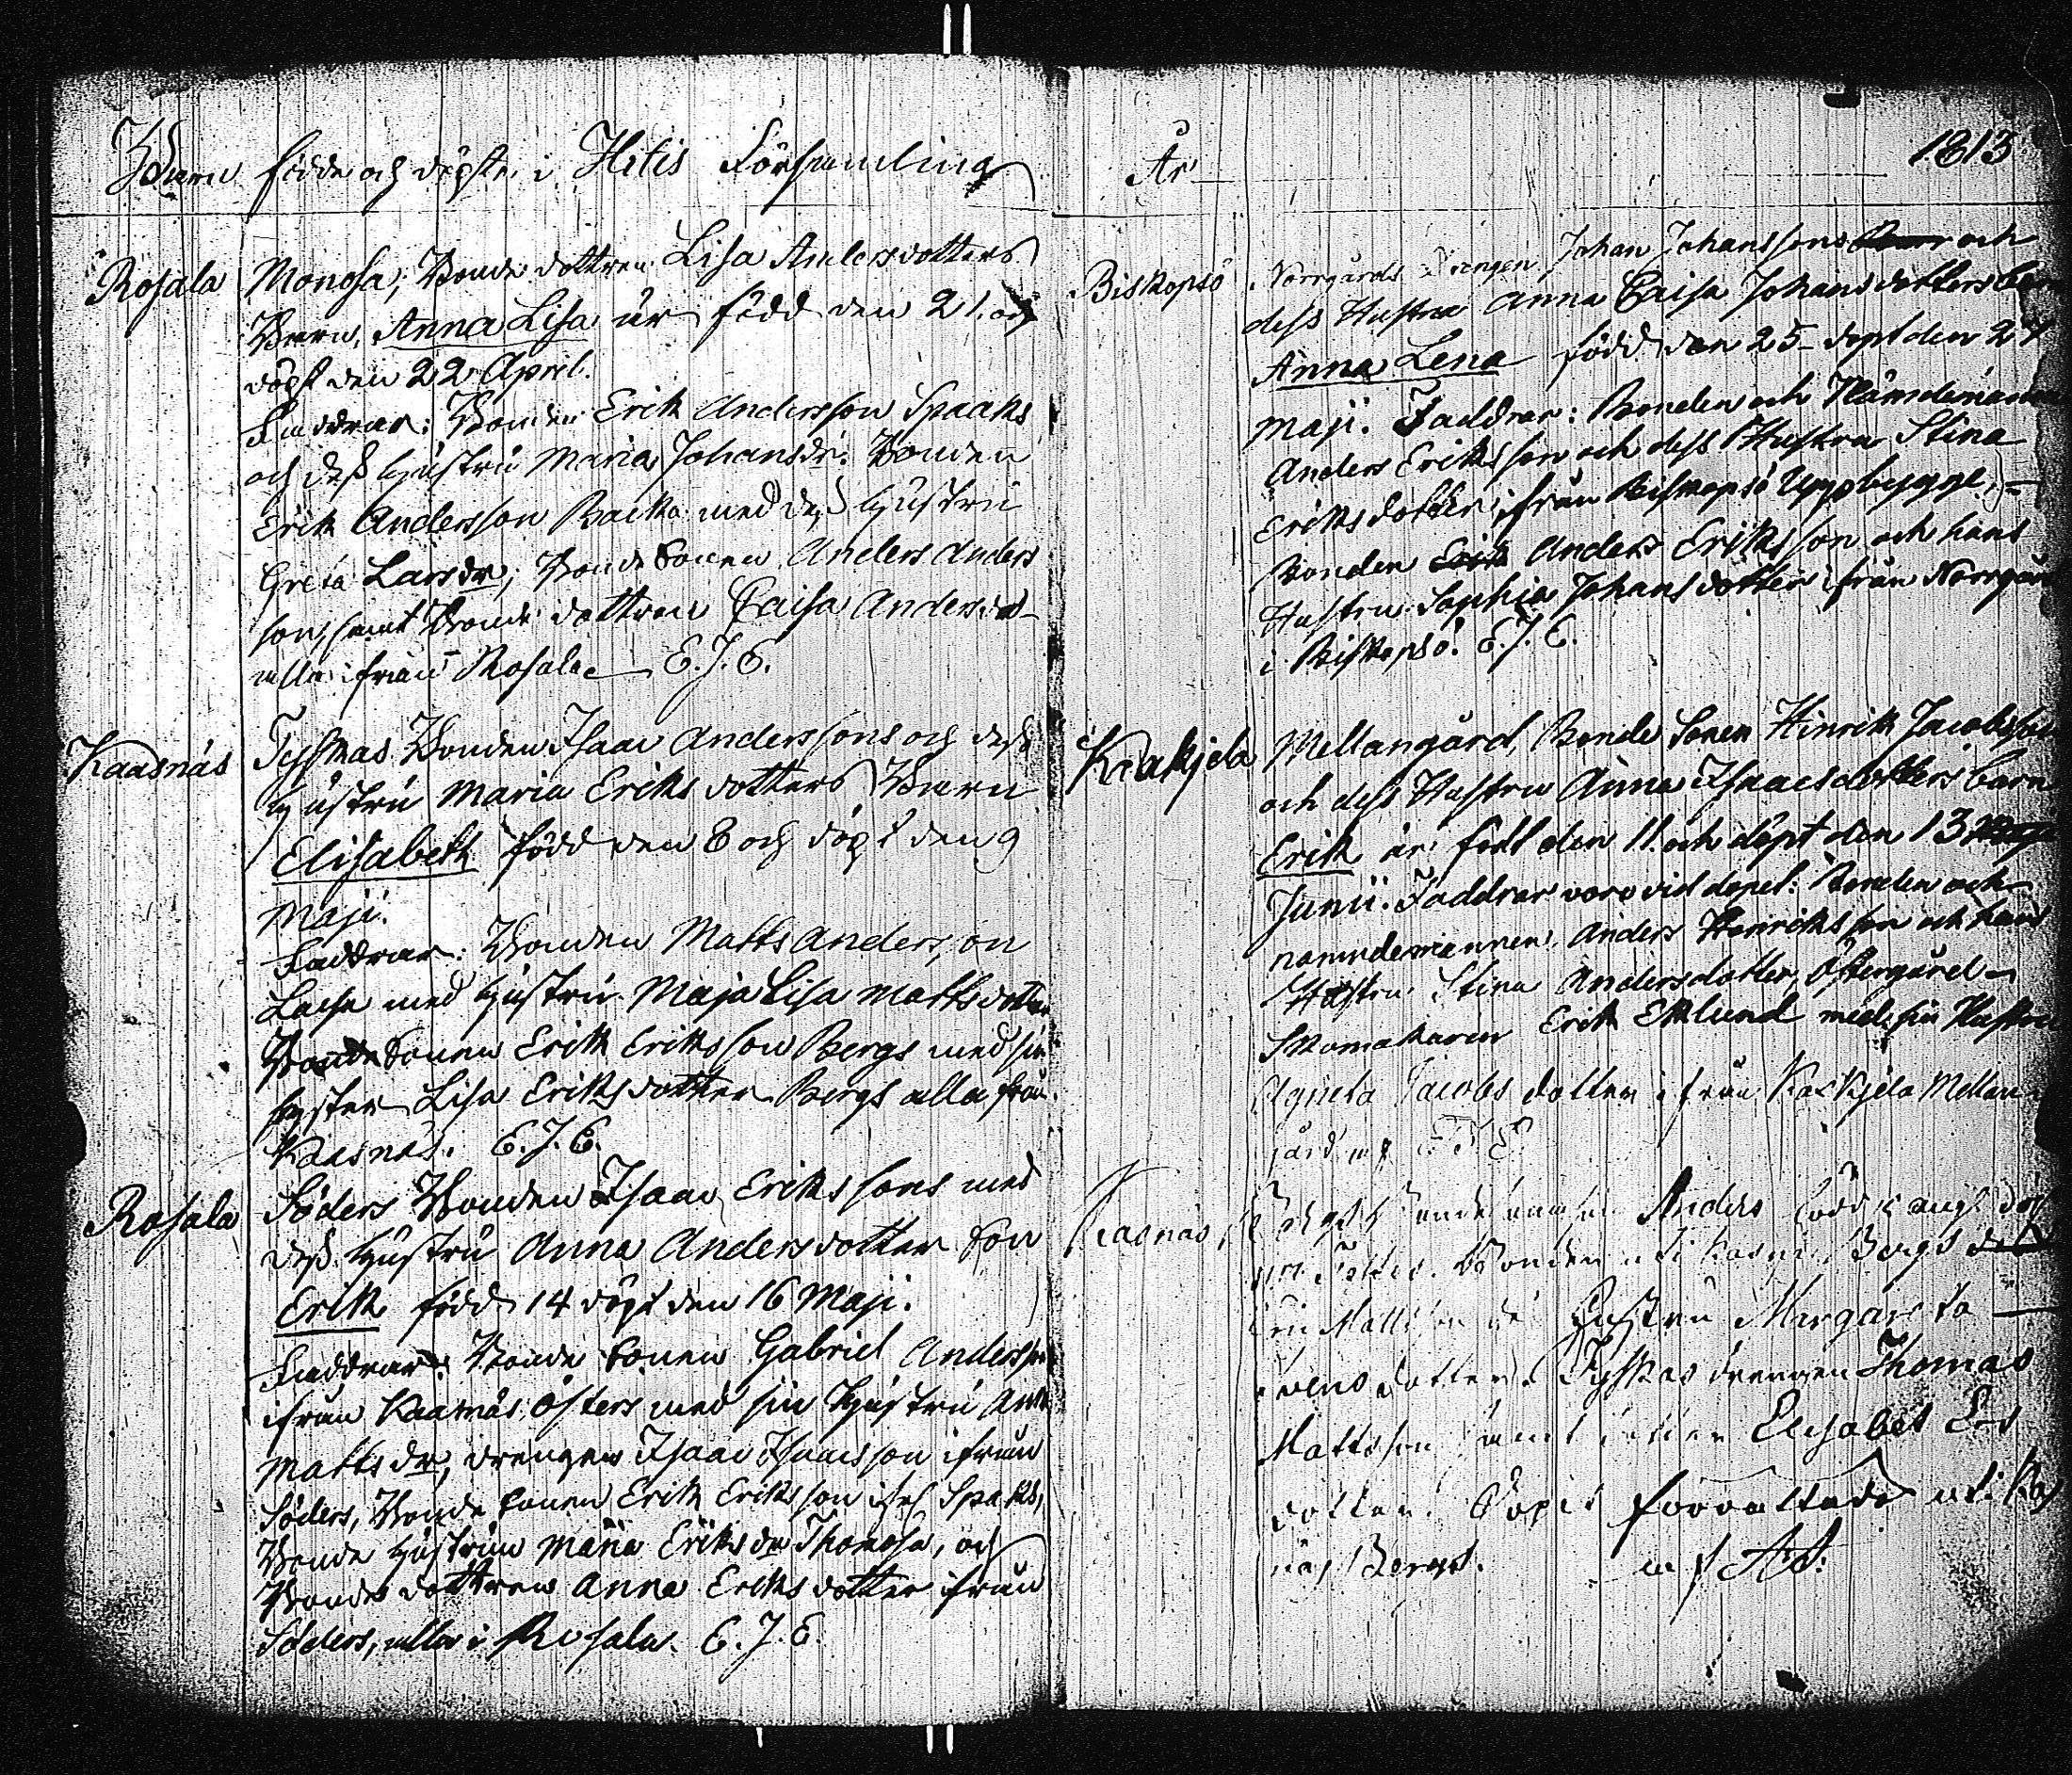 Barn födde och döpte i Hitis Församling
Rosala
Monosa; Bonde dottren Lisa Andersdotters
Barn, Anna Lisa är född den 21. och
döpt den 22 April.
Faddrar: Bonden Erik Andersson Spaaks
och dess hustru Maria Johansdr. Bonden
Erik Andersson Backa med dess hustru
Greta Larsdr, Bonde Sonen Anders Anders
son, samt Bonde dottren Caisa Andersd
alla ifrån Rosala E.J.E.
Kaasnäs
Tysskas Bonden Isaac Anderssons och dess
hustru Maria Eriksdotters Barn
Elisabeth född den 8 och döpt den 9
Maji.
Faddrar: Bonden Matts Andersson
med hustru Maja Lisa Mattsdotter
Bonde Sonen Erik Eriksson Bergs med sin
syster Lisa Eriksdotter Bergs alla från
Kaasnäs. E.J.E.
Rosala
Söders Bonden Isaac Erikssons med
dess hustru Anna Andersdotter Son
Erik född 14 döpt den 16 Maji.
Faddrar: Bonde Sonen Gabriel Andersson
ifrån Kaasnäs Östers med sin hustru Anna
Mattsdr, drengen Isaac Isaacsson ifrån
Söders, Bonde sonen Erik Eriksson Spaks,
Bonde hustrun Maria Eriksdr Thomosa, och
Bonde dottren Anna Eriksdotter ifrån
Söders, alla i Rosala. E.J.E.
År 1813
Biskopsö
Norrgårds Drengen Johan Johanssons och
dess Hustru Anna Caisa Johansdotters barn
Anna Lena född den 25 döpt den 27
Maji. Faddrar: Bonden och Nämdeman
Anders Eriksson och dess Hustru Stina
Eriksdotter ifrån Biskopsö Uppbygge,
Bonden Erik Anders Eriksson och hans
Hustru Sophia Johansdotter ifrån Norrgård
i Biskopsö. E.J.E.
Krakjela
Mellangård, Bonde Sonen Hinrik Jacobsson
och dess Hustru Anna Isaacsdotters barn
Erik är född den 11. och döpt den 13
Junii. Faddrar voro vid dopet: Bonden och
namndemannen Anders Henriksson och hans
Hustru Stina Andersdotter, Östergård
Skomakaren Erik Eklund med sin Hustru
Agneta Jacobsdotter ifrån Kackjela Mellan
gård E J E
Kasnäs
Anders född Aug döpt
Bonden Bergs
Mattsson Hustru Margareta
dotter Tyskas drengen Thomas
Mattsson samt Elisabet
dotter. Dopet förrättade uti Kas
näs Bergs. af